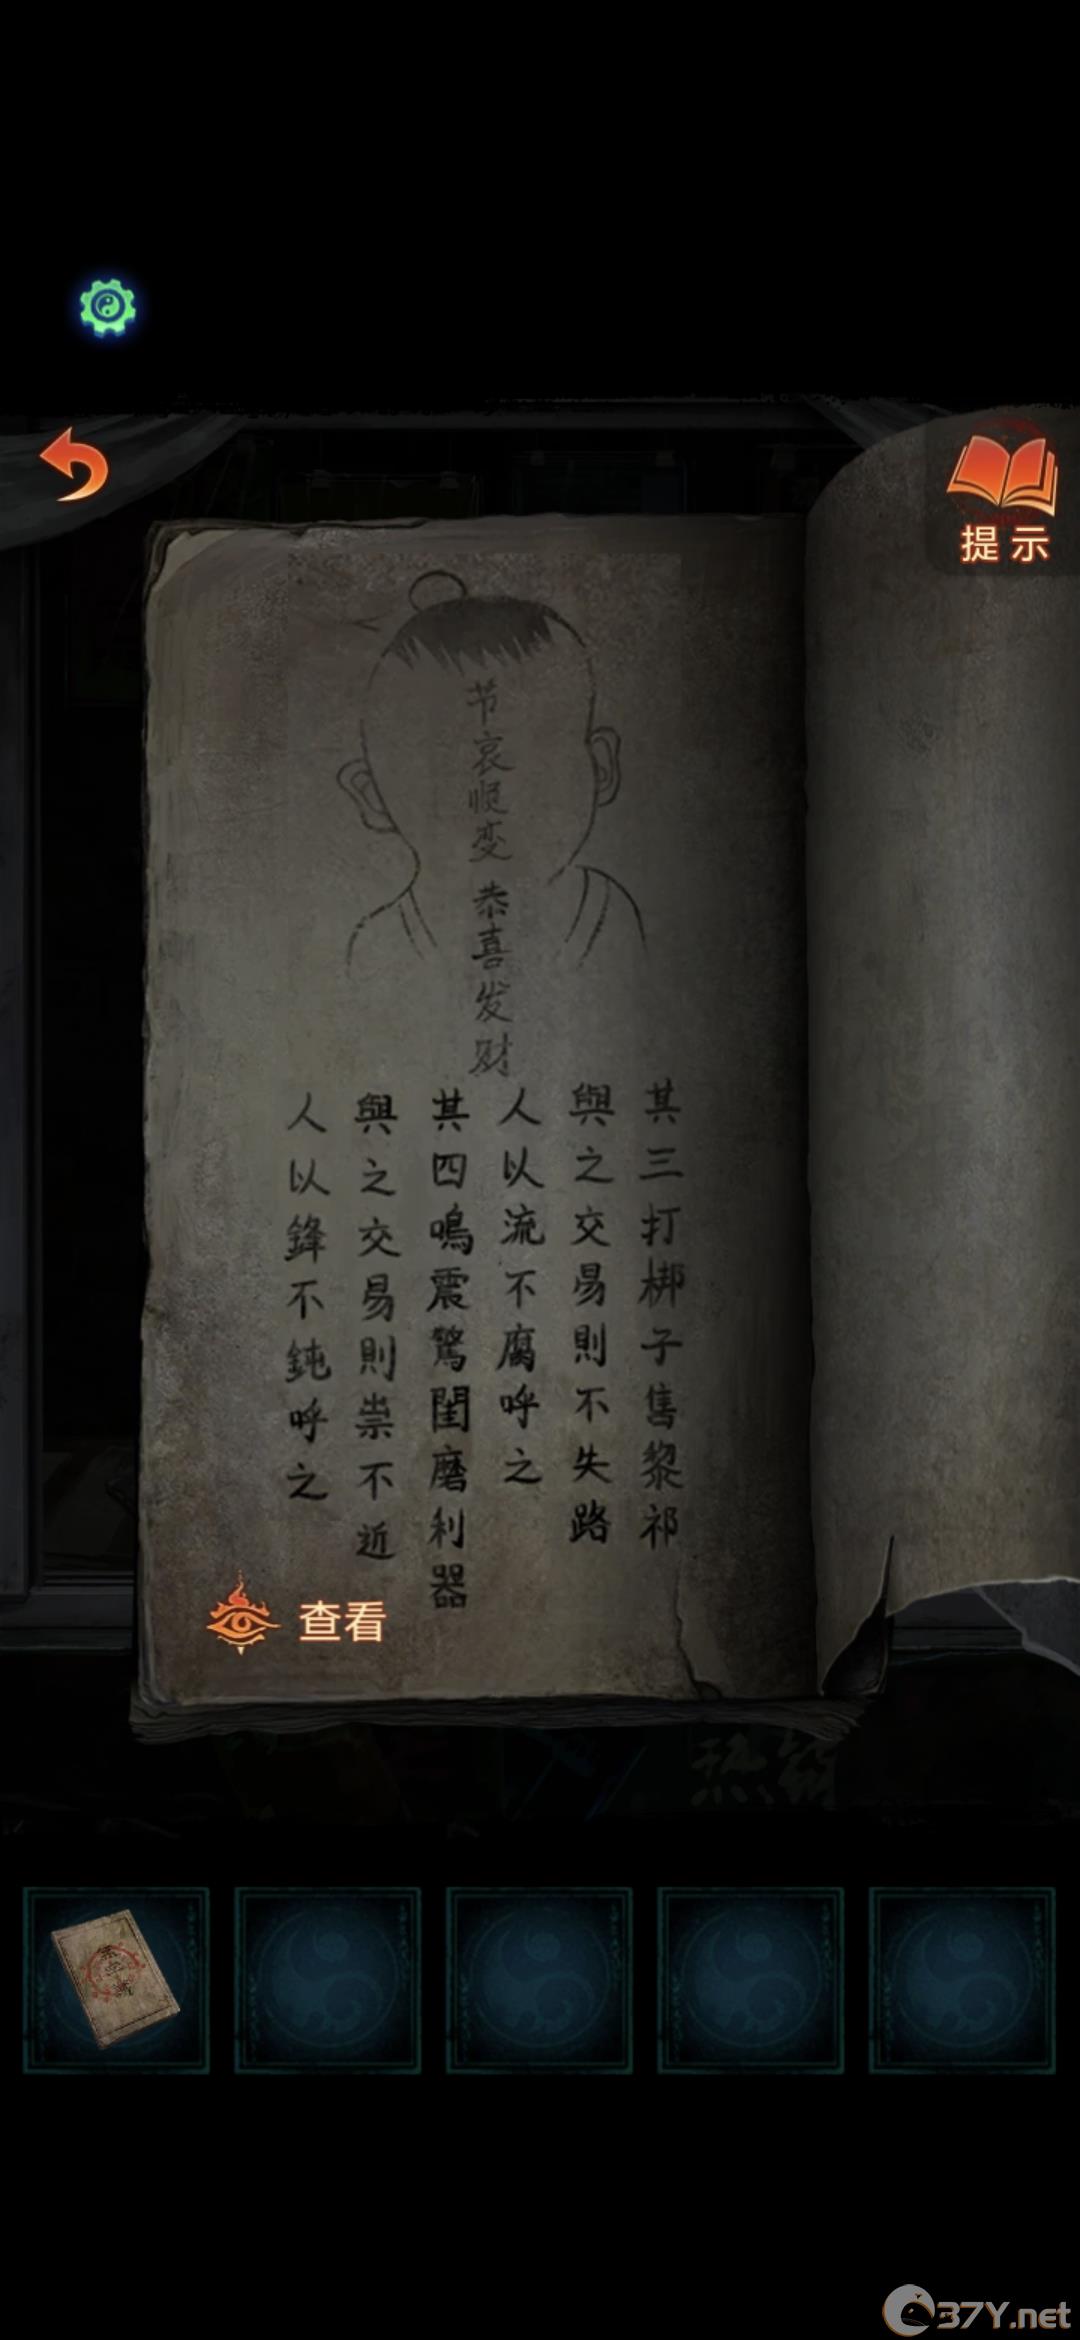 提示
节哀顺变 恭喜发财
其三打梆子售黎祁
與之交易則不失路
人以流不腐呼之
其四鳴震驚閨磨利器
與之交易則祟不近
人以鋒不鈍呼之
查看
37Y.net